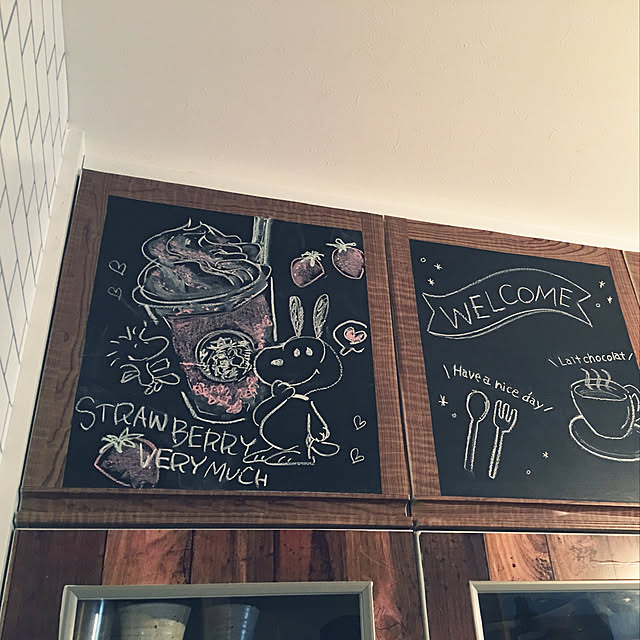 STRAWBERRY
VERY MUCH
WELCOME
\ Have a nice day /
\ Lait chocolat /